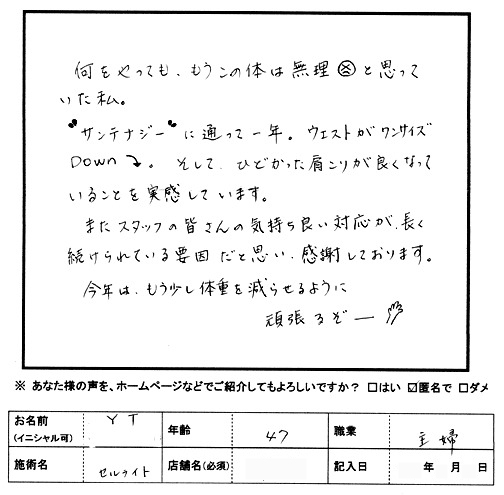 何をやっても、もうこの体は無理⊗と思って
いた私。
"サンテナジー"に通って一年。ウエストがワンサイズ
Down↴。そして、ひどかった肩こりが良くなって
いることを実感しています。
またスタッフの皆さんの気持ち良い対応が、長く
続けられている要因だと思い、感謝しております。
今年は、もう少し体重を減らせるように
頑張るぞー
※ あなた様の声を、ホームページなどでご紹介してもよろしいですか？ □はい ☑匿名で □ダメ
お名前 YT 年齢 47 職業 主婦
(イニシャル可)
施術名 セルライト 店舗名(必須) 記入日 年 月 日